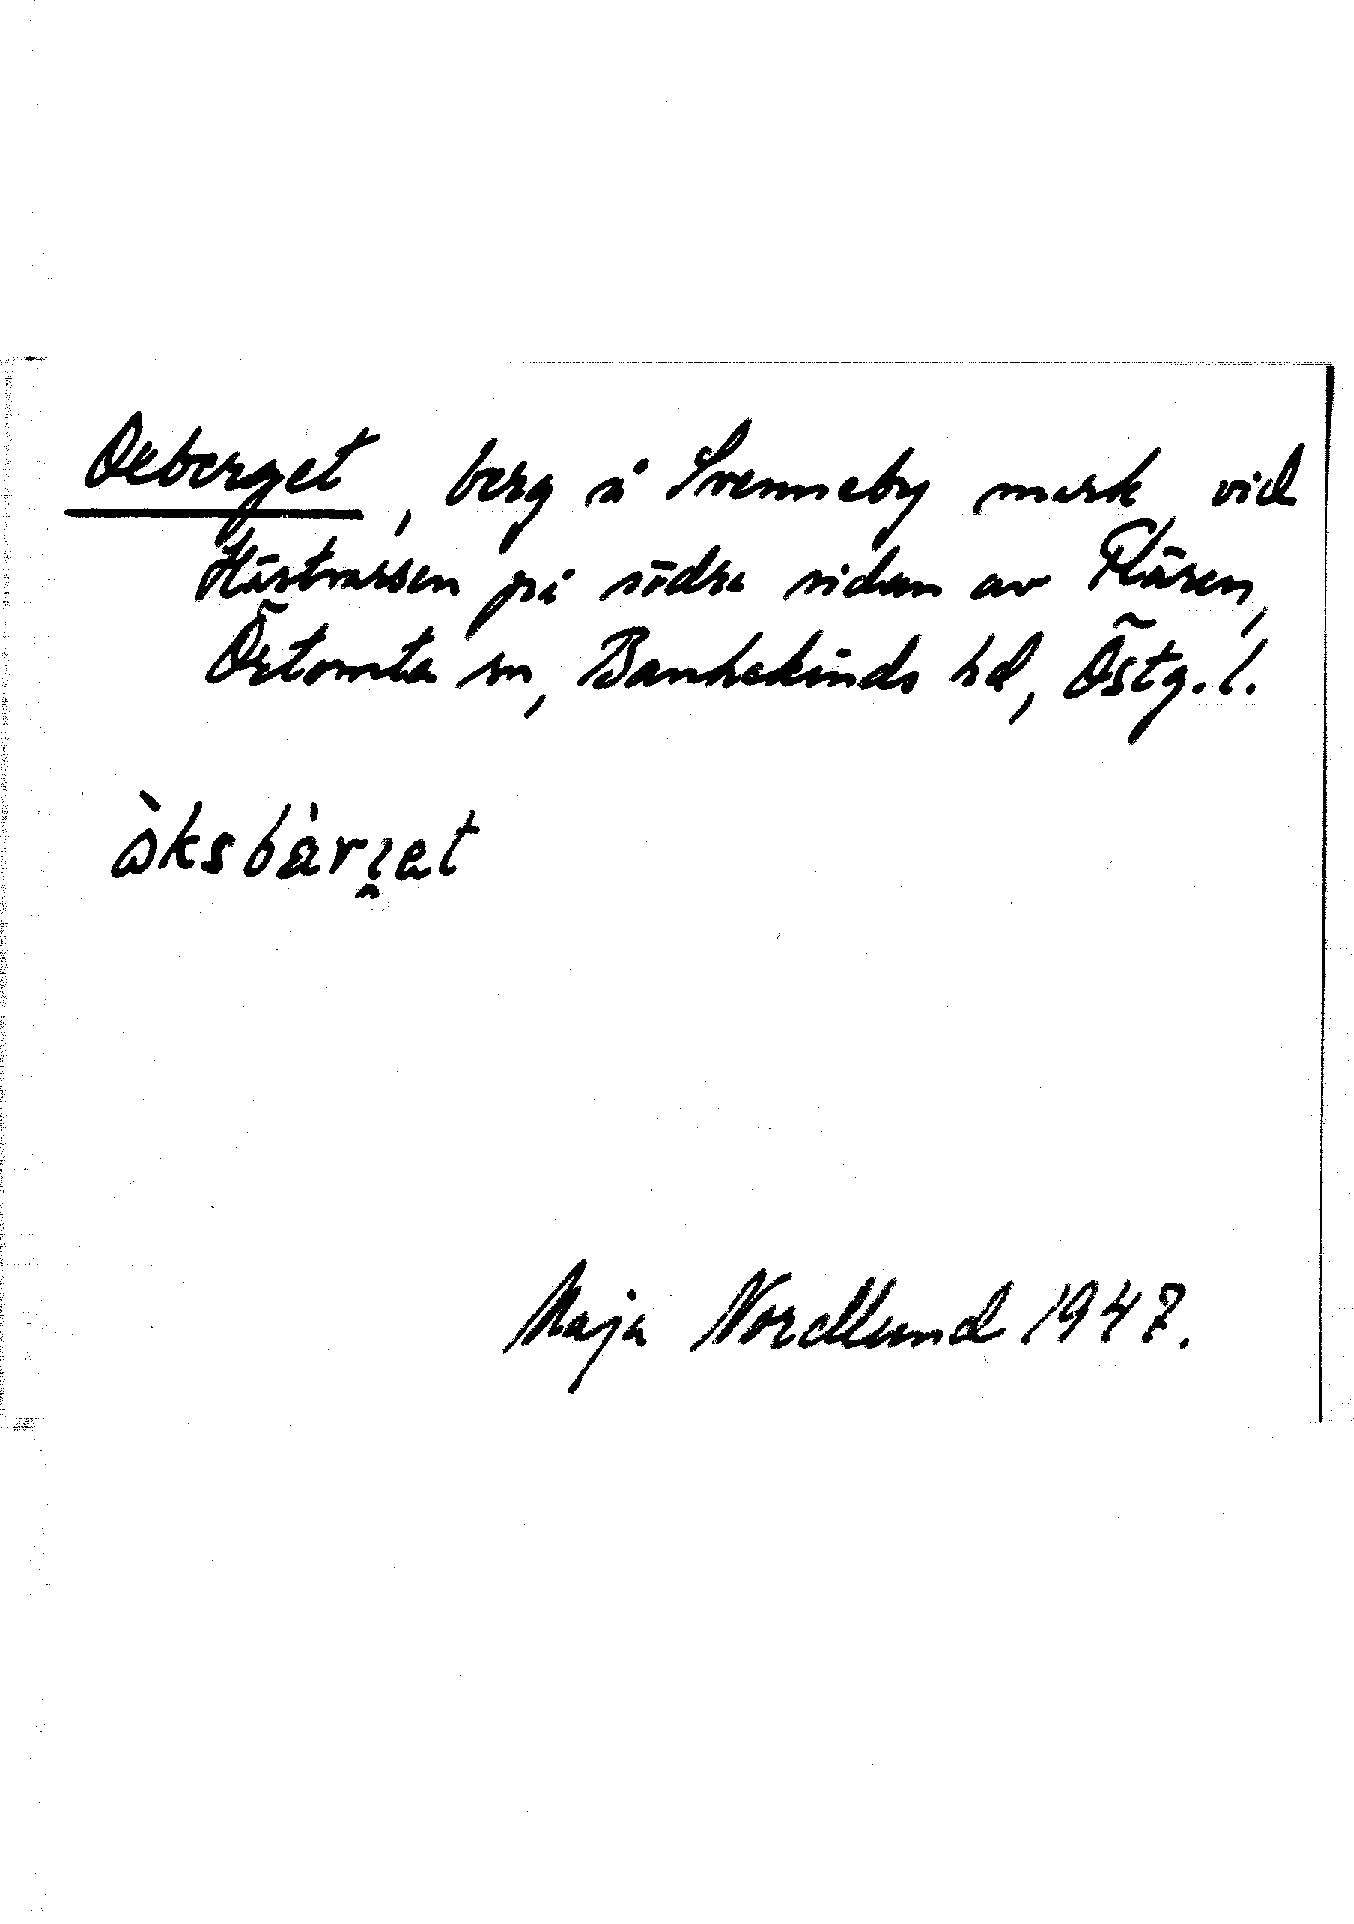 Oxberget, berg å Svenneby mark vid
Hästvassen på södra sidan av Flären,
Örtomta sn, Bankekinds hd, Östg. l.
òksbàrɪ̯et
Maja Nordlund 1947.